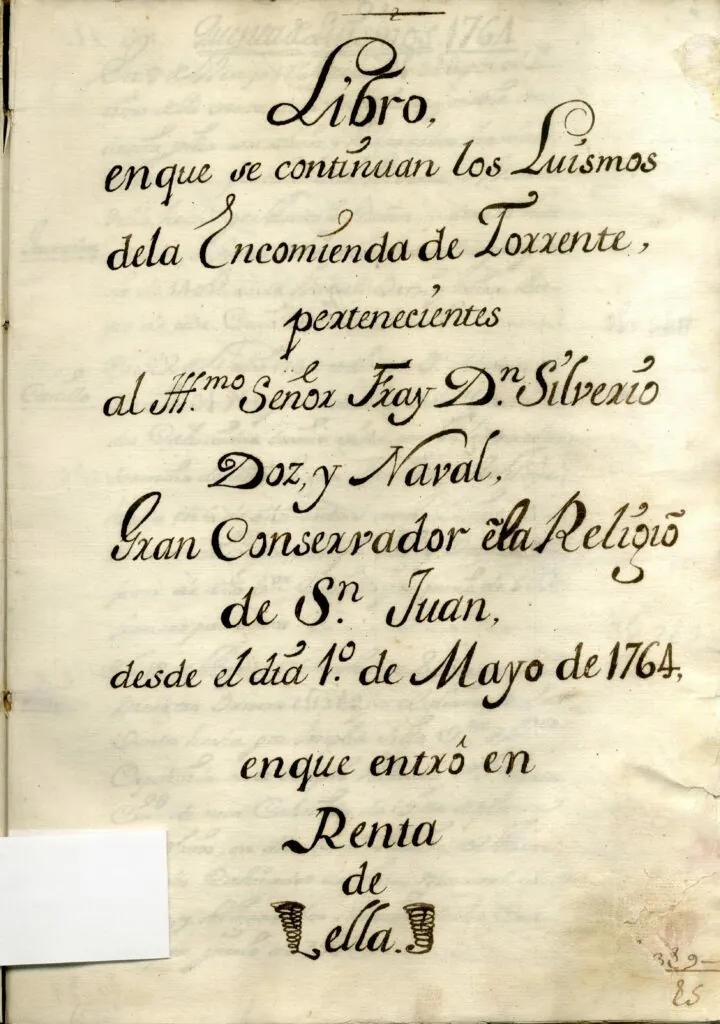 Libro,
enque se continuan los Luismos
dela Encomienda de Torrente,
pertenecientes
al Ill.mo Señor Fray D.n Silverio
Doz, y Naval,
Gran Conservador ẽla Religiõ
de S.n Juan,
desde el dia 1.o de Mayo de 1764,
enque entrò en
Renta
de
ella.
389
85